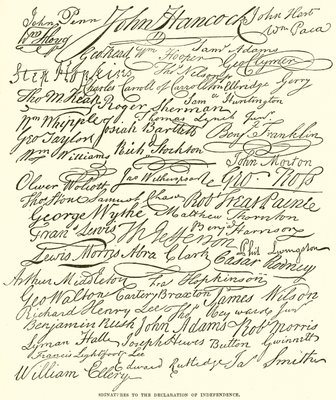 John Penn John Hancock John Hart
Wm Paca
Geo Read Wm Hooper Saml Adams
Geo Clymer
Step Hopkins Thos Nelson jr
Charles Carroll of Carrollton Elbridge Gerry
Tho M:Kean Roger Sherman Saml Huntington
Wm Whipple Thomas Lynch Junr
Geo Taylor Josiah Bartlett Benj Franklin
Wm Williams Richd Stockton John Morton
Oliver Wolcott Jno Witherspoon Geo Ross
Thos Stone Samuel Chase Robt Treat Paine
George Wythe Matthew Thornton
Fran Lewis Th Jefferson Benj Harrison
Lewis Morris Abra Clark Phil Livingston
Cæsar Rodney
Arthur Middleton Fras Hopkinson
Geo Walton Carter Braxton James Wilson
Richard Henry Lee Thos Heyward Junr
Benjamin Rush John Adams Robt Morris
Lyman Hall Joseph Hewes Button Gwinnett
Francis Lightfoot Lee
William Ellery Edward Rutledge Jas Smith
SIGNATURES TO THE DECLARATION OF INDEPENDENCE.